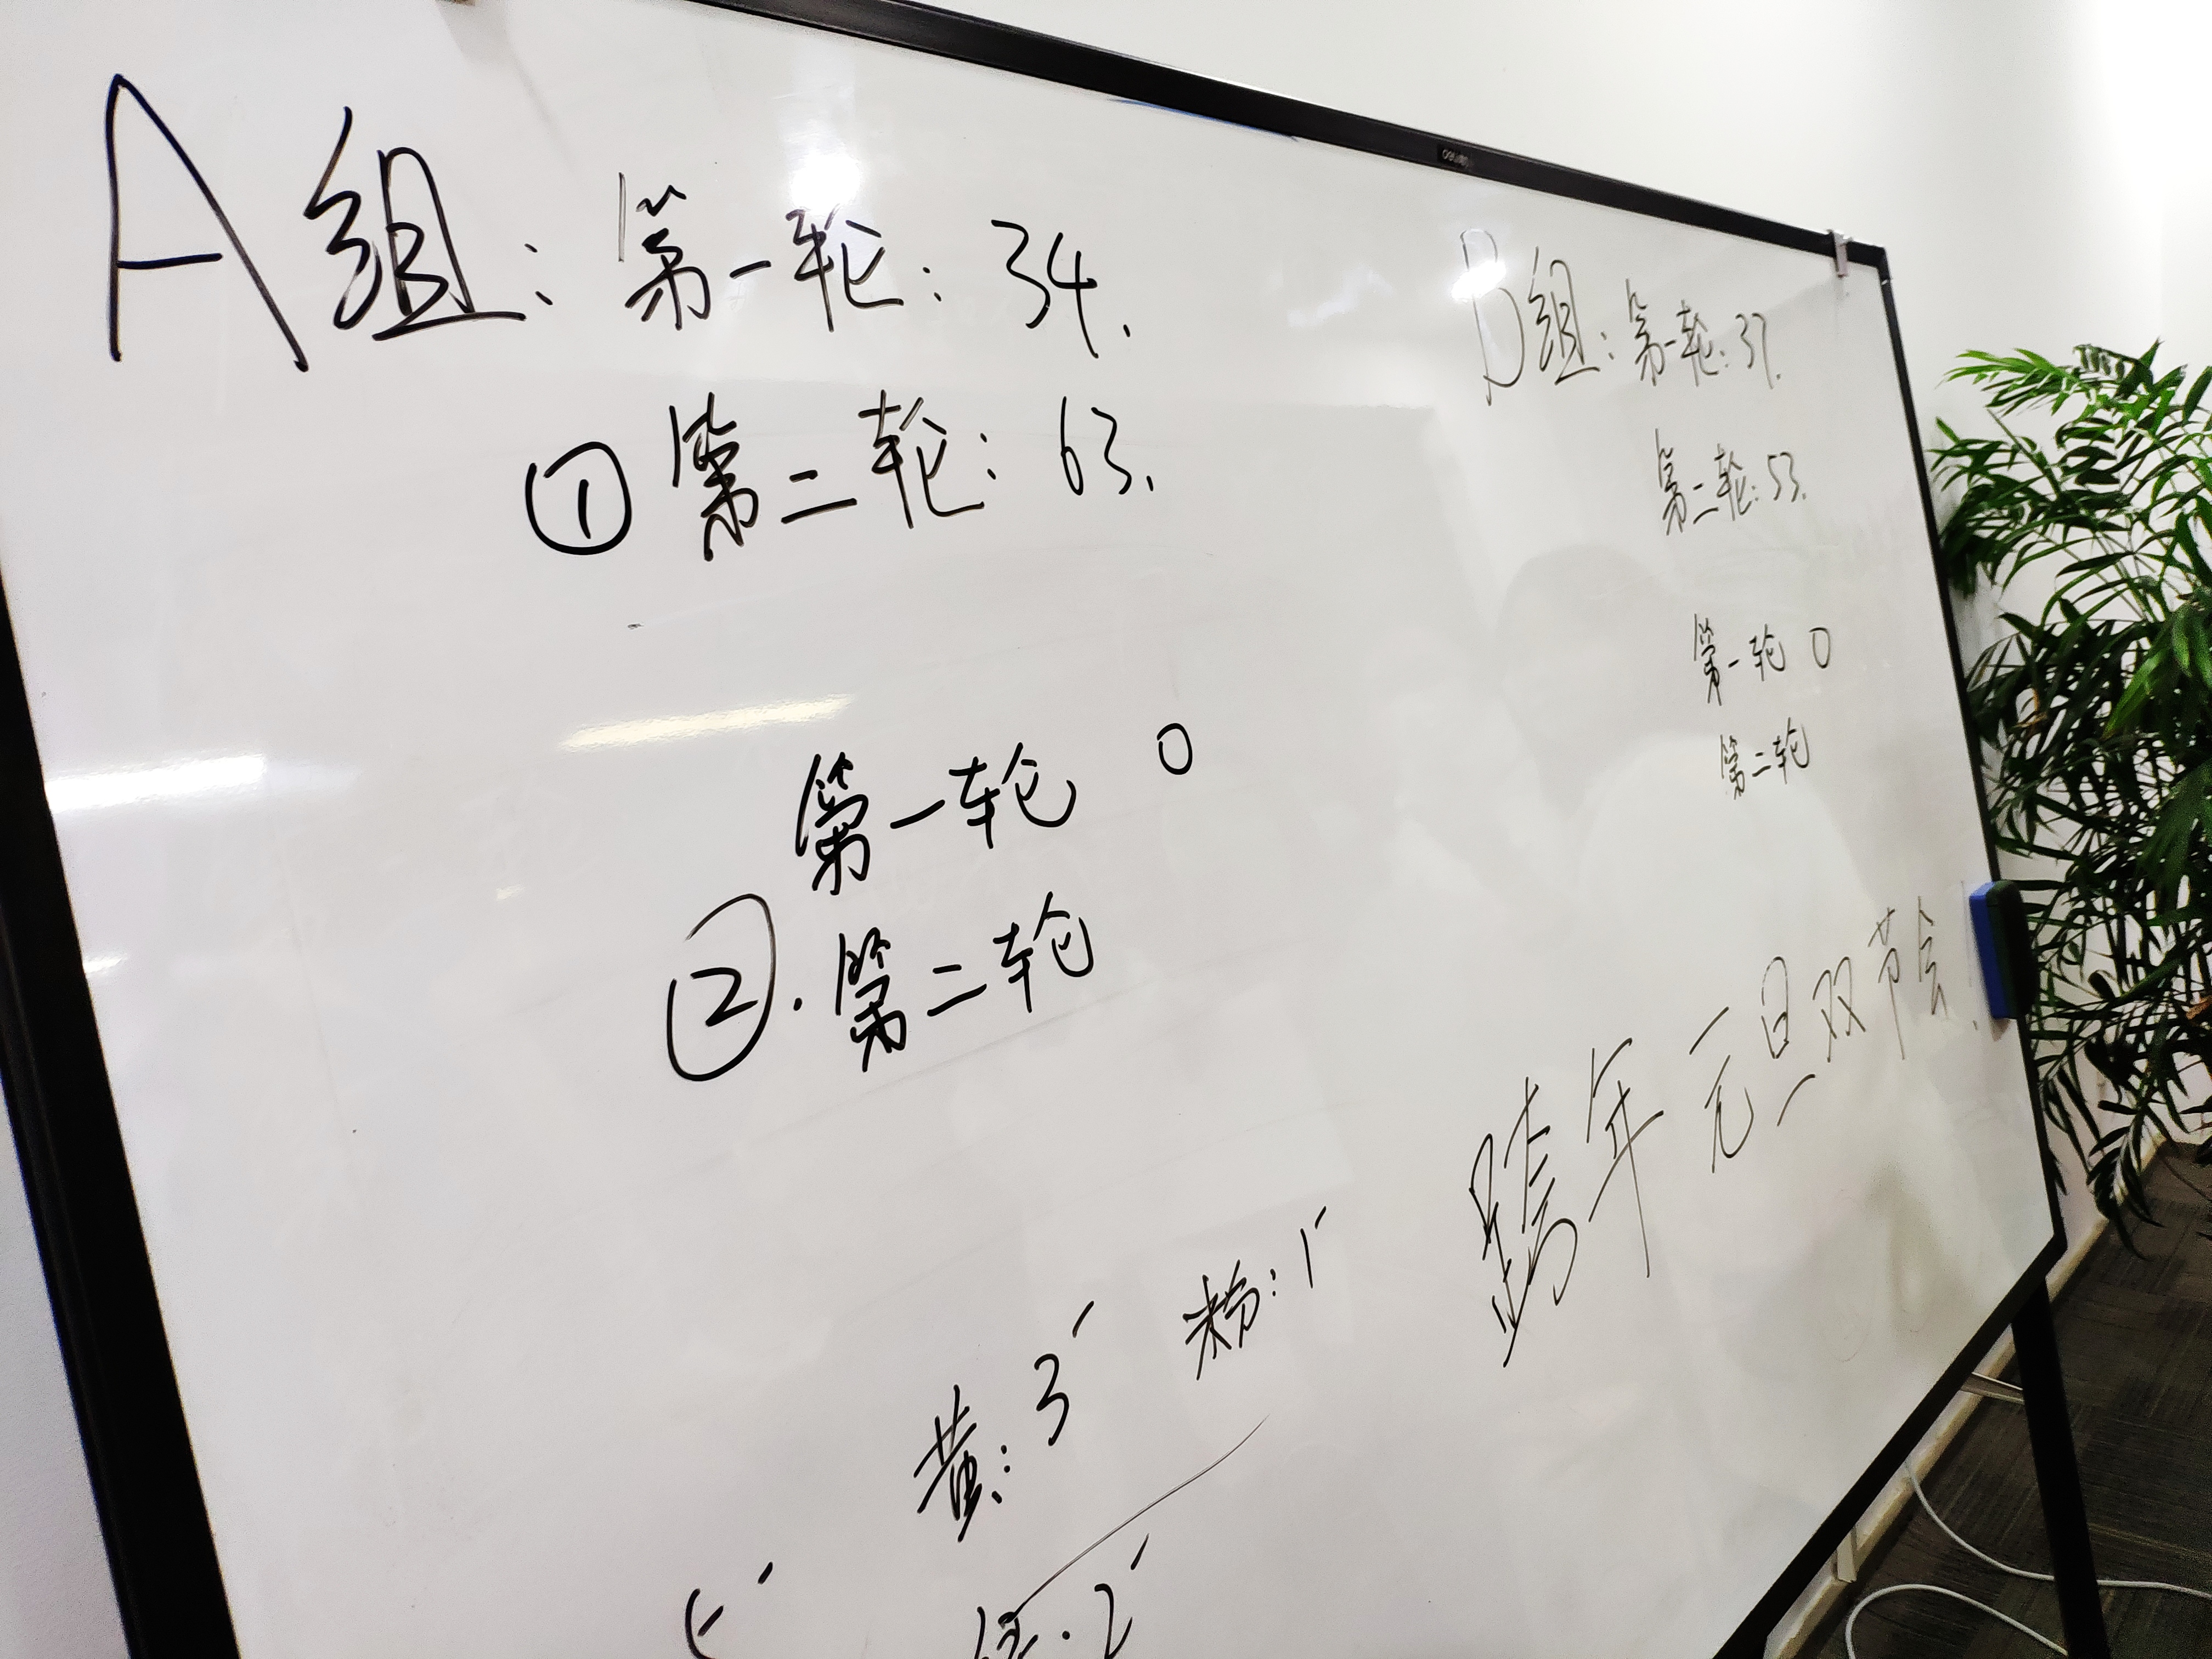 A组：第一轮：34.
①第二轮：63.
第一轮 0
②.第二轮
B组：第一轮：37.
第二轮：53.
第一轮 0
第二轮
跨年元旦双节会
黄：3'
粉：1'
2'